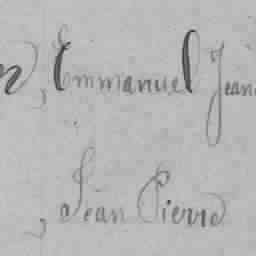 , Emmanuel Jean
, Jean Pierre